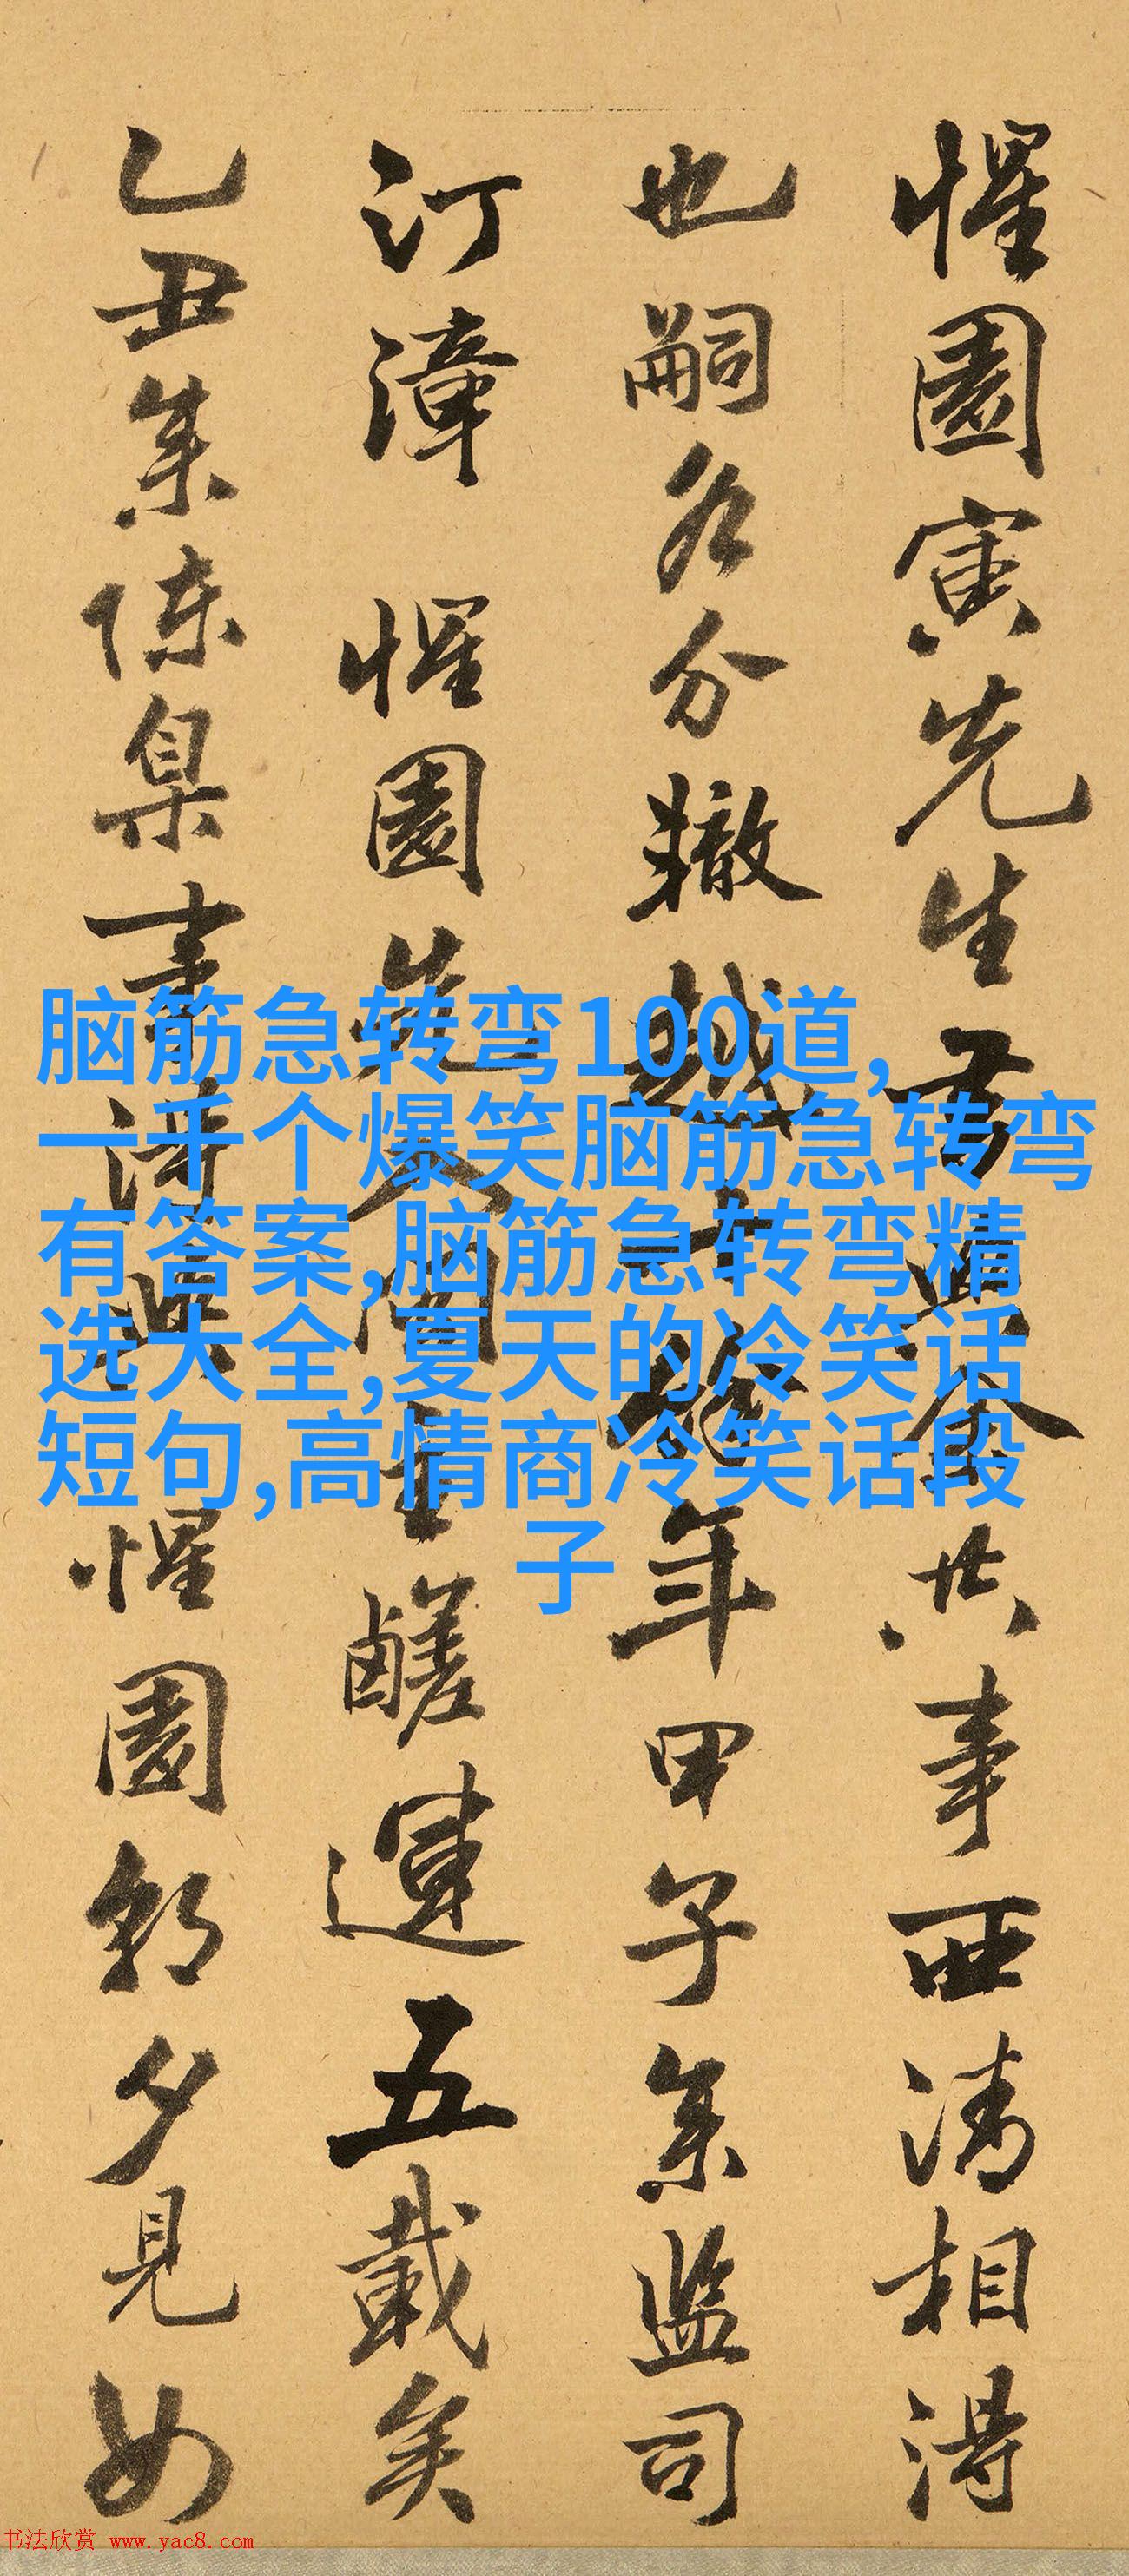 惺園寅先生
共事西清相得
也嗣各分轍越
年甲子余監司
汀漳 惺園先
鹾運五載矣
乙丑余陈臬
惺園朝夕見如
脑筋急转弯100道,
一千个爆笑脑筋急转弯
有答案,脑筋急转弯精
选大全,夏天的冷笑话
短句,高情商冷笑话段
子
书法欣赏 www.yac8.com